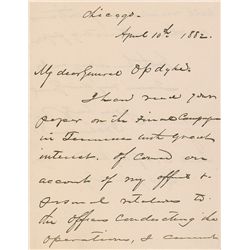 Chicago.
April 10th 1882.
My dear General Opdycke
I have read your
paper on the Final Campaign
in Tennessee with great
interest. Of course on
account of my official &
personal relations to
the officers conducting the
operations, I cannot